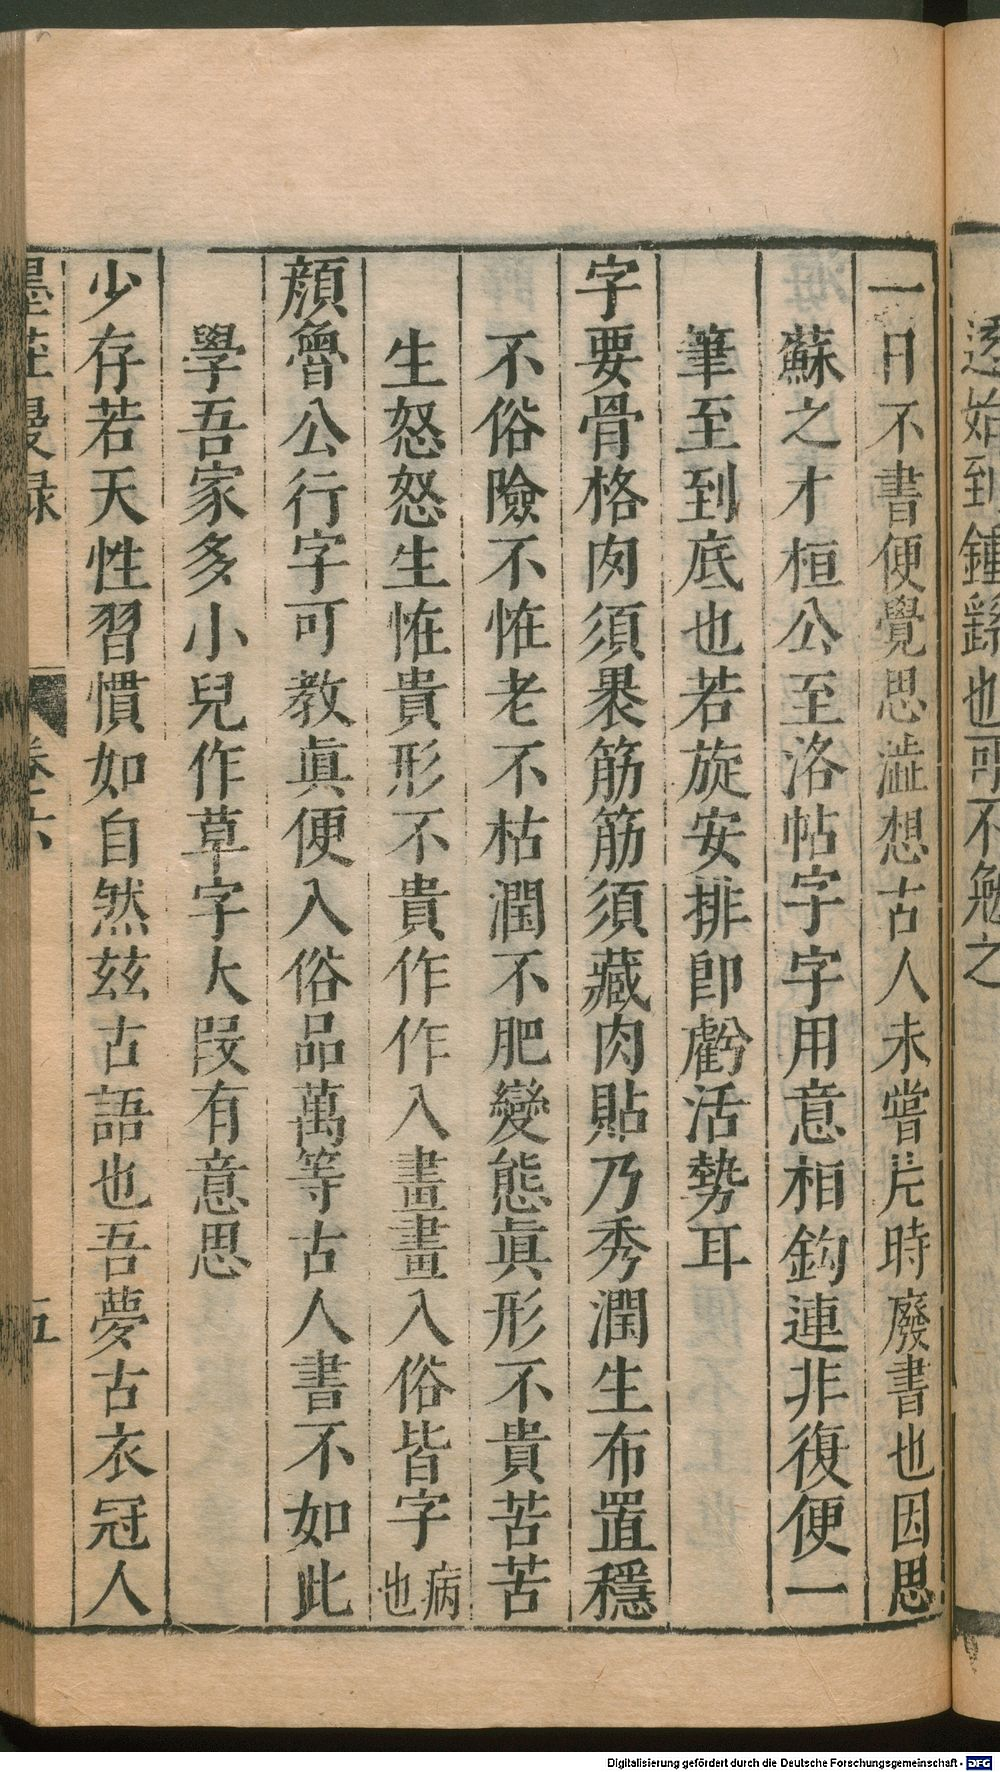 透始到鍾繇也可不勉之
一日不書便覺思澁想古人未嘗片時廢書也因思
蘇之才桓公至洛帖字字用意相鈎連非復便一
筆至到底也若旋安排卽虧活勢耳
字要骨格肉須裹筋筋須藏肉貼乃秀潤生布置穩
不俗險不恠老不枯潤不肥變態眞形不貴苦苦
生怒怒生恠貴形不貴作作入畫畫入俗皆字病也
顔魯公行字可教眞便入俗品萬等古人書不如此
學吾家多小兒作草字大段有意思
少存若天性習慣如自然兹古語也吾夢古衣冠人
墨莊漫録 卷六 五
Digitalisierung gefördert durch die Deutsche Forschungsgemeinschaft - DFG